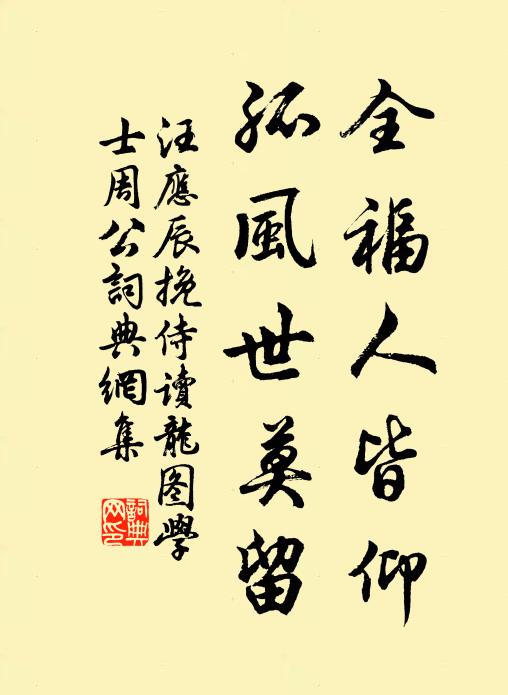 全福人皆仰
孤風世莫留
汪應辰挽侍读龍图學
士周公詞典網集
詞典
网印